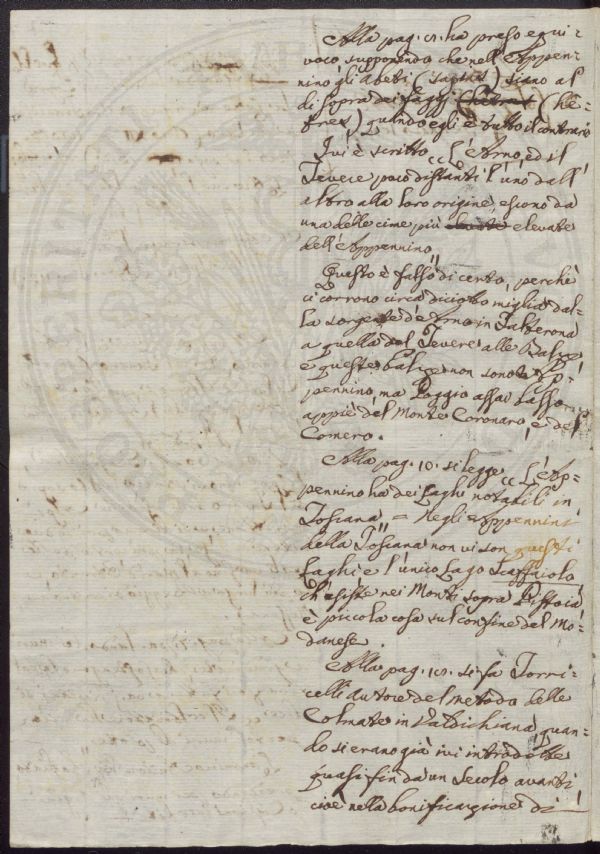 Alla pag. 5. ha preso equi-
voco supponendo che nell'Appen-
nino gli Abeti (sapins) siano al
di sopra dei Faggi (hê-
tres) quando egli è tutto il contrario
Ivi è scritto "L'Arno, ed il
Tevere poco distanti l'uno dall'
altro alla loro origine, escono da
una delle cime più elevate
dell'Appennino"
Questo è falso di certo, perchè
ci corrono circa diciotto miglia dal-
la sorgente d'Arno in Falterona
a quella del Tevere alle Balze
e queste balze non sono Ap-
pennino, ma Poggio assai basso
appiè del Monte Coronaro, e del
Comero.
Alla pag. 10. si legge "L'Ap-
pennino ha dei Laghi notabili in
Toscana" = Negli Appennini
della Toscana non vi son questi
Laghi e l'unico Lago Scaffaiolo
ch'esiste nei Monti sopra Pistoia,
è piccola cosa sul confine del Mo-
danese.
Alla pag. si fa Torri-
celli autore del metodo delle
Colmate in Valdichiana, quan-
do si erano già ivi introdotte
quasi fin da un secolo avanti
cioè nella bonificazione di